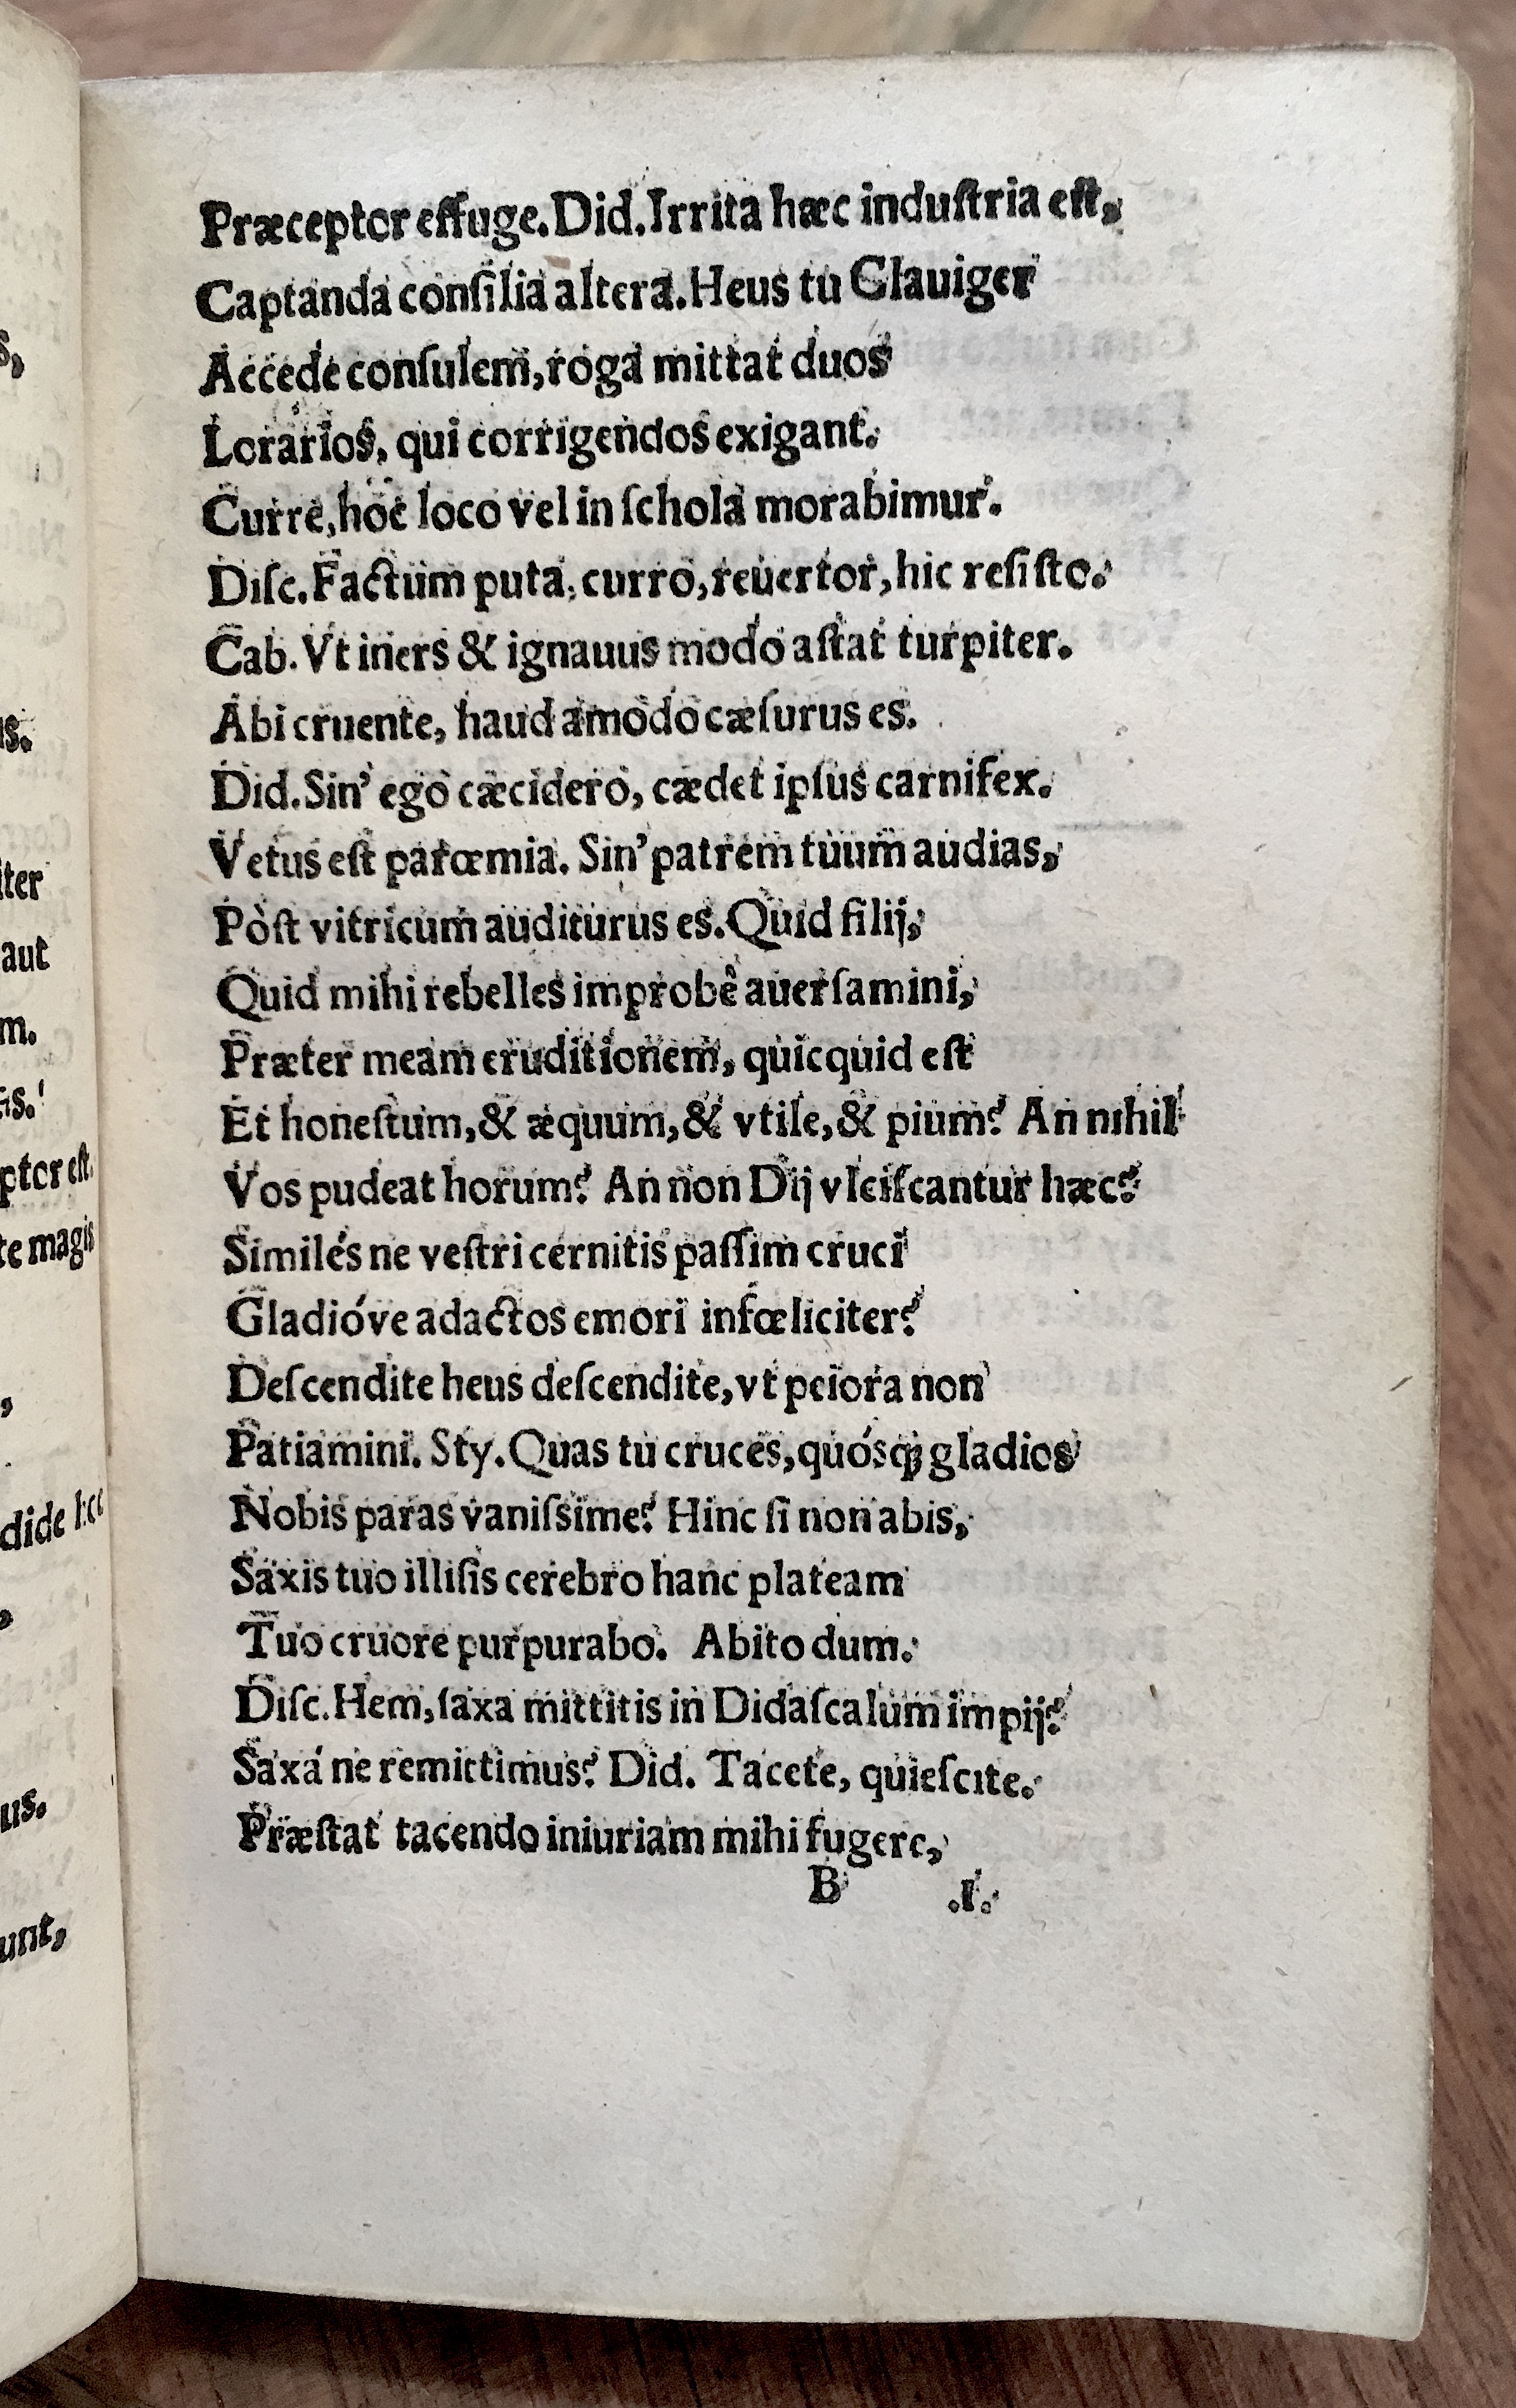 Præceptor effuge. Did. Irrita hæc induſtria eſt,
Captanda conſilia altera. Heus tu Clauiger
Accede conſulem, roga mittat duos
Lorarios, qui corrigendos exigant.
Curre, hoc loco vel in ſchola morabimur.
Diſc. Factum puta, curro, reuertor, hic reſiſto.
Cab. Vt iners & ignauus modo aſtat turpiter.
Abi cruente, haud amodo cæſurus es.
Did. Sin' ego cæcidero, cædet ipſus carnifex.
Vetus eſt parœmia. Sin' patrem tuum audias,
Pòſt vitricum auditurus es. Quid filij,
Quid mihi rebelles improbê auerſamini,
Præter meam eruditionem, quicquid eſt
Et honeſtum, & æquum, & vtile, & pium? An nihil
Vos pudeat horum? An non Dij vlciſcantur hæc?
Similés ne veſtri cernitis paſſim cruci
Gladióve adactos emori infœliciter?
Deſcendite heus deſcendite, vt peiora non
Patiamini. Sty. Quas tu cruces, quósq; gladios
Nobis paras vaniſsime? Hinc ſi non abis,
Saxis tuo illiſis cerebro hanc plateam
Tuo cruore purpurabo. Abito dum.
Diſc. Hem, ſaxa mittitis in Didaſcalum impij?
Saxá ne remittimus? Did. Tacete, quieſcite.
Præſtat tacendo iniuriam mihi fugere,
B .I.
s,
us.
iter
aut
m.
is.
ptor eſt.
te magis
,
.
dide
,
us.
unt,